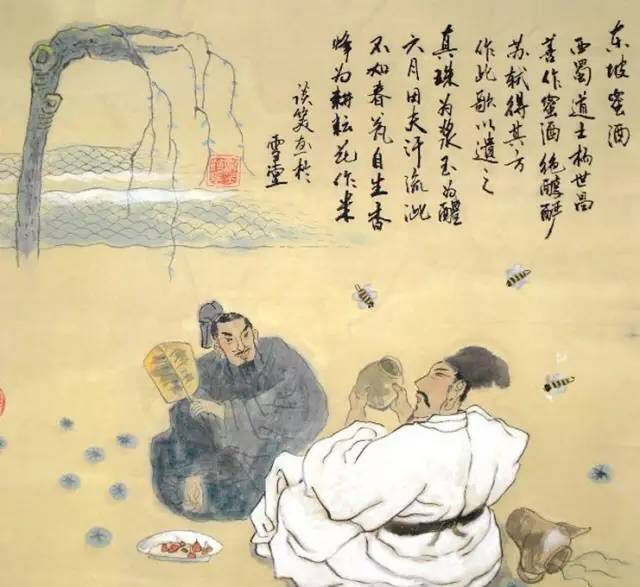 东坡蜜酒
西蜀道士杨世昌
善作蜜酒绝醇酽
苏轼得其方
作此歌以遗之
真珠为浆玉为醴
六月田夫汗流泚
不如春瓮自生香
蜂为耕耘花作米
谈笑画于
雪堂